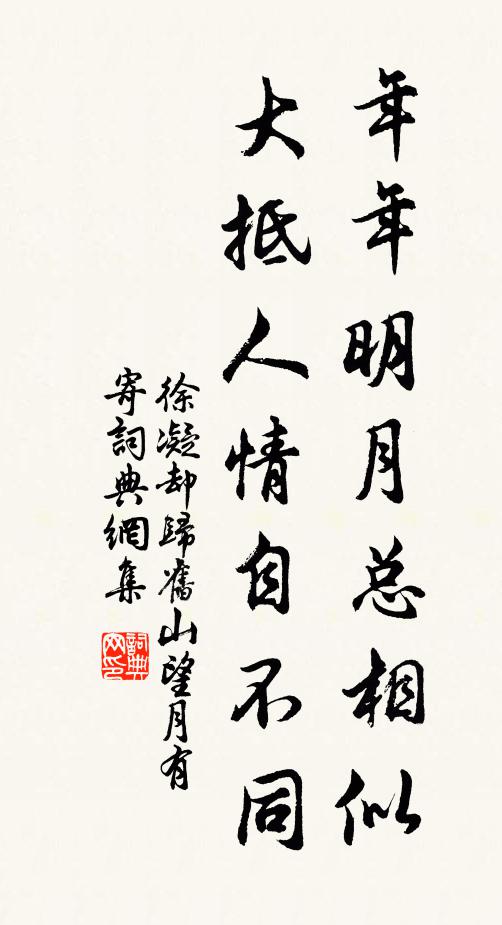 年年明月总相似
大抵人情自不同
徐凝却歸舊山望月有
寄詞典網集
詞典
网印